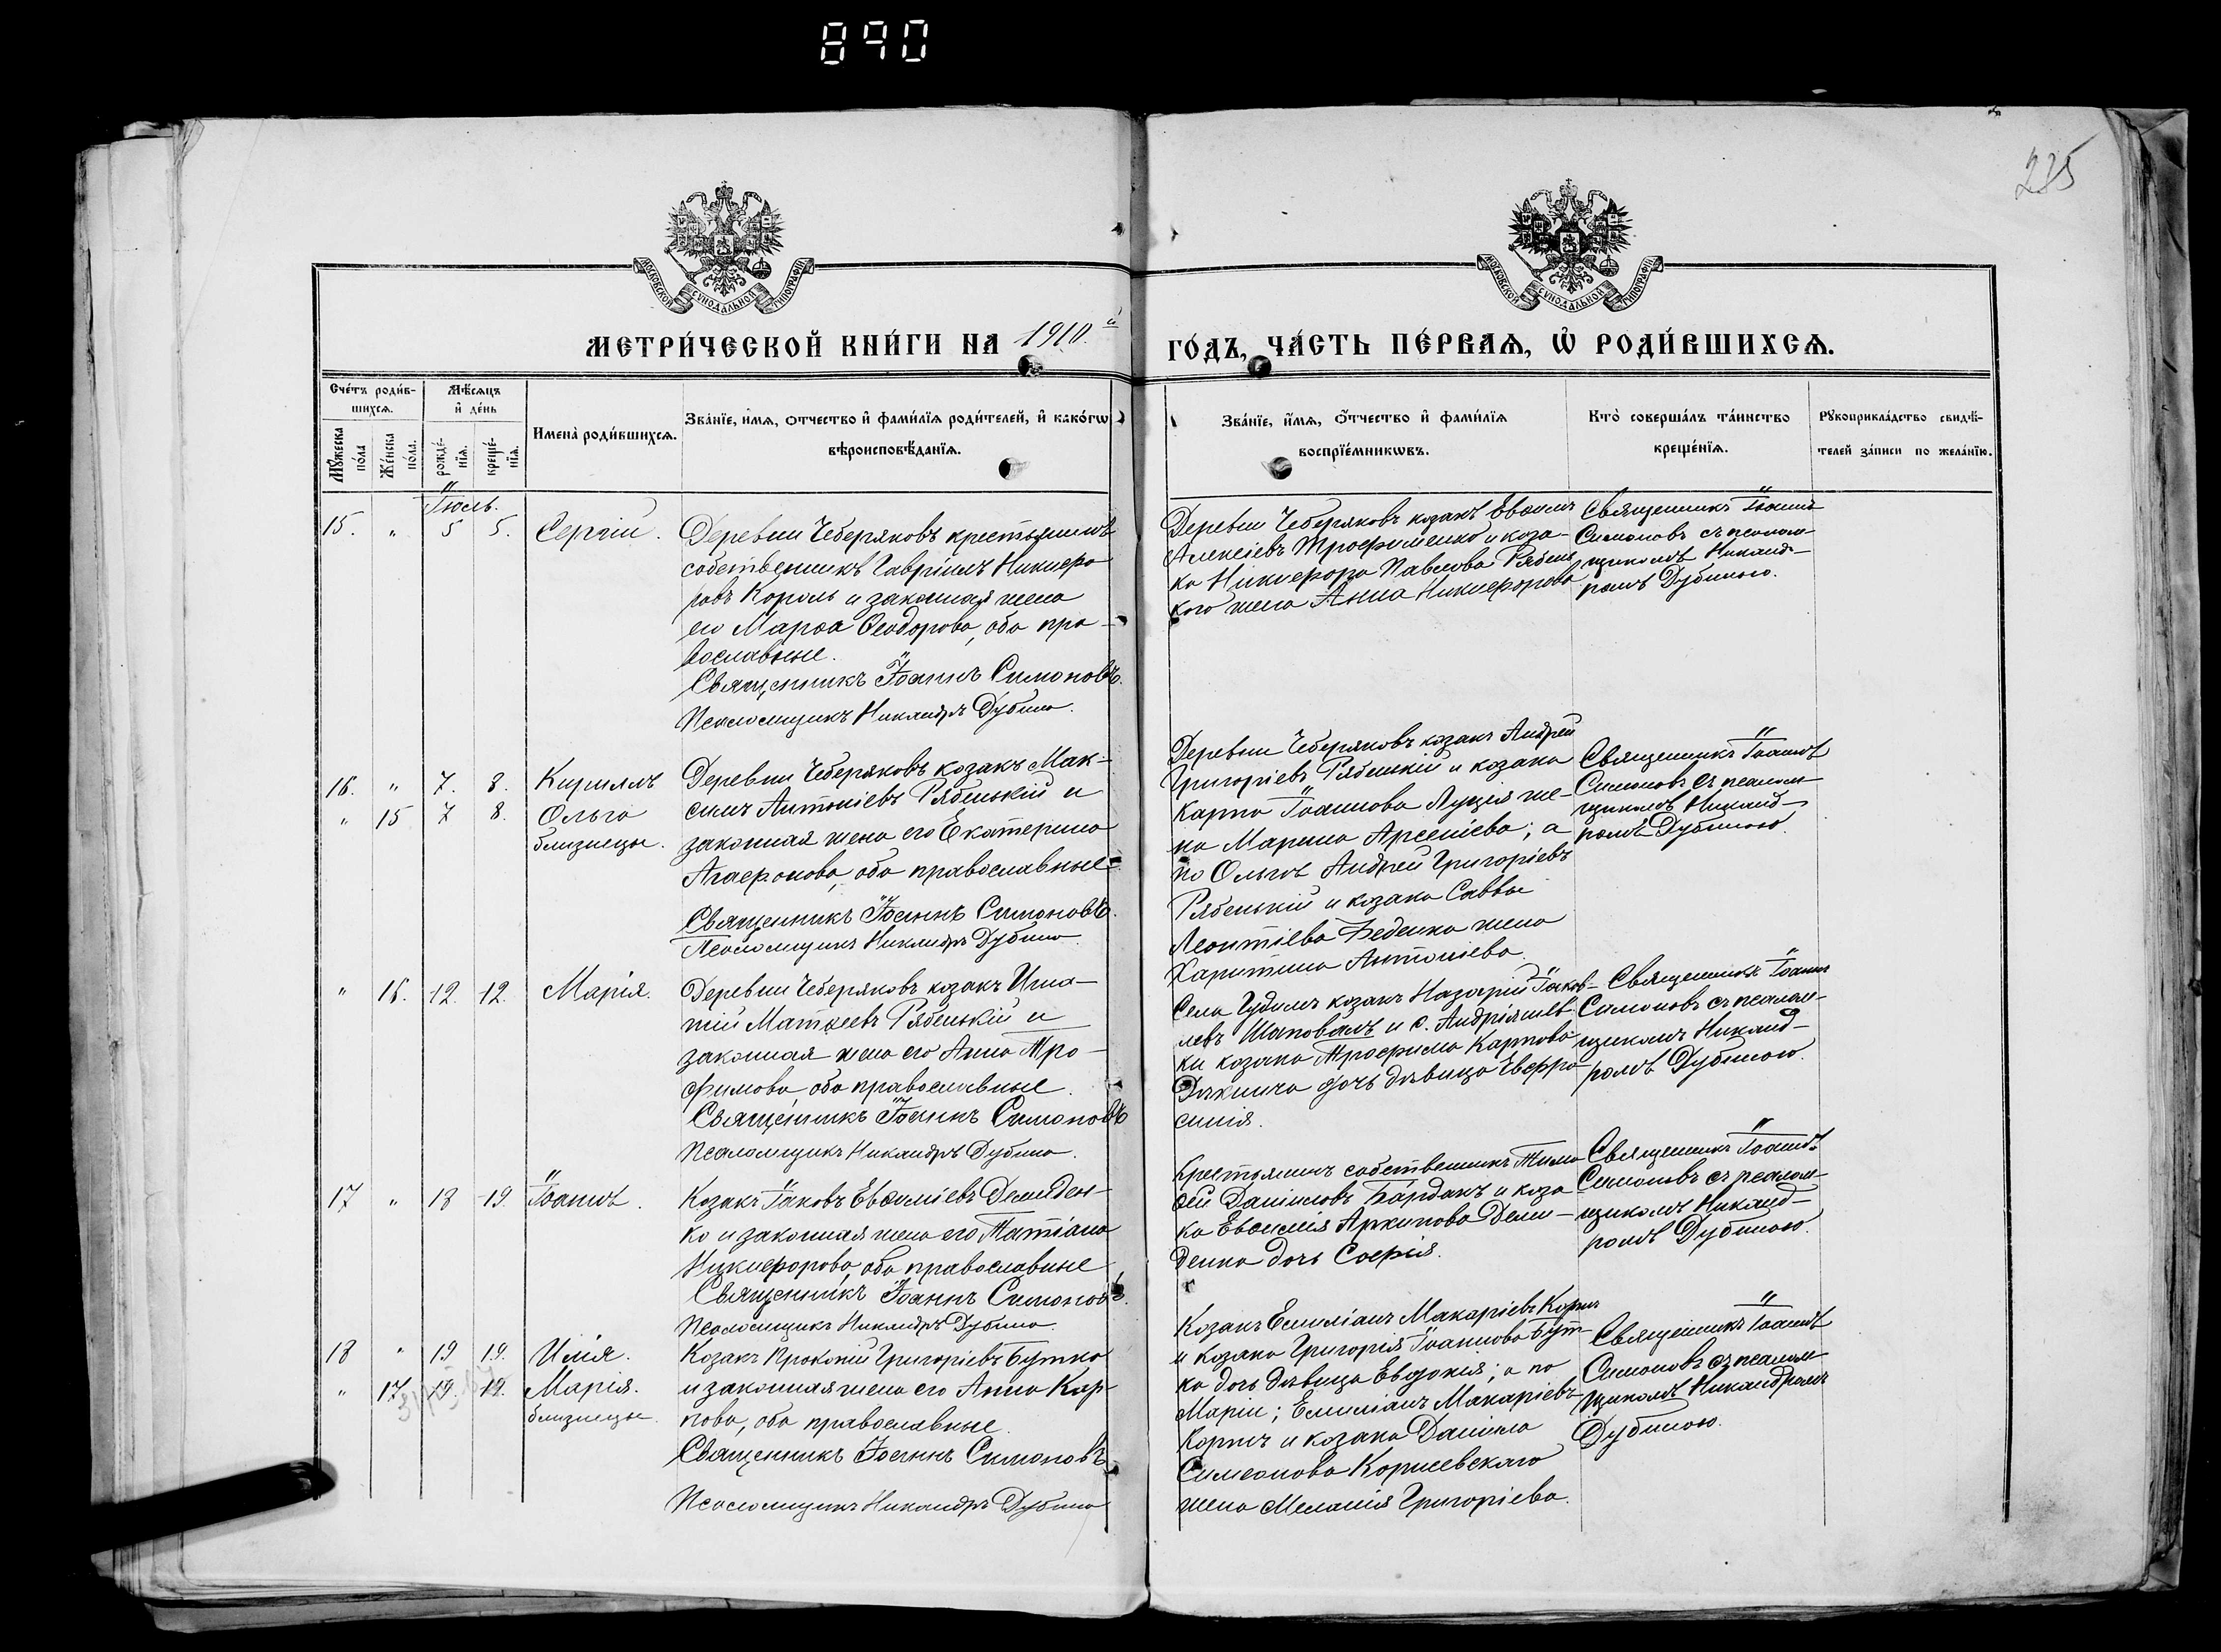 890
235
МОСКОВСКОЙ СѴНОДАЛЬНОЙ ТИПОГРАФІИ
МОСКОВСКОЙ СѴНОДАЛЬНОЙ ТИПОГРАФІИ
МЕТРИ́ЧЕСКОЙ КНИ́ГИ НА 1910.й
ГО́ДЪ, ЧА́СТЬ ПЕ́РВАѦ, Ѡ҆ РОДИ́ВШИХСѦ.
Сче́тъ роди́в-
шихсѧ.
Мѣ́сѧцъ
и҆ де́нь
Мꙋ́жеска по́ла
Же́нска по́ла.
рожде́-
нїѧ.
креще́-
нїѧ.
Имена̀ роди́вшихсѧ.
Зва́нїе, и҆́мѧ, ѻтчество и҆ фами́лїѧ роди́телей, и҆ како́гѡ
вѣроисповѣ́данїѧ.
Зва́нїе, и҆́мѧ, ѻ҆́тчество и҆ фами́лїѧ
воспрїе́мникѡвъ.
Кто̀ соверша́лъ та́инство
креще́нїѧ.
Рꙋкоприкла́дство свидѣ́-
телей за́писи по жела́нїю.
Іюль.
15. " 5 5. Сергій.
Деревни Чеберяковъ крестьянинъ
собственникъ Гавріилъ Никифо
ровъ Король и законная жена
его Марѳа Ѳеодорова, оба пра-
вославные.
Священникъ Іоаннъ Симоновъ.
Псаломщикъ Никандръ Дубина.
Деревни Чеберяковъ козакъ Евѳимъ
Алексіевъ Трофименко и коза-
ка Никифора Павлова Рябень
кого жена Анна Никифорова
Священникъ Іоаннъ
Симоновъ съ псалом-
щикомъ Никанд-
ромъ Дубиною.
16. " 7. 8. Кириллъ
" 15 7 8. Ольга
близнецы.
Деревни Чеберяковъ козакъ Мак-
симъ Антоніевъ Рябенькій и
законная жена его Екатерина
Агафонова, оба православные
Священникъ Іоаннъ Симоновъ.
Псаломщикъ Никандръ Дубина.
Деревни Чеберяковъ козакъ Андрей
Григоріевъ Рябенькій и козака
Карпа Іоаннова Луценя же-
на Марина Арсеніева; а
по Ольгѣ Андрей Григоріевъ
Рябенькій и козака Саввы
Леонтіева Беденка жена
Харитина Антоніева.
Священникъ Іоаннъ
Симоновъ съ псалом-
щикомъ Никанд-
ромъ Дубиною.
" 16. 12. 12. Марія.
Деревни Чеберяковъ козакъ Игна-
тій Матѳеевъ Рябенькій и
законная жена его Анна Тро-
фимова, оба православные.
Священникъ Іоаннъ Симоновъ
Псаломщикъ Никандръ Дубина.
Села Гудимъ козакъ Назарій Іаков-
левъ Шаповалъ и с. Андріяшев-
ки козака Трофима Карпова
дочь дѣвица Евфро
синія.
Священникъ Іоаннъ
Симоновъ съ псалом-
щикомъ Никанд-
ромъ Дубиною.
17 " 18 19. Іоаннъ.
Козакъ Іаковъ Евѳиміевъ Демиден-
ко и законная жена его Татіана
Никифорова, оба православные
Священникъ Іоаннъ Симоновъ.
Псаломщикъ Никандръ Дубина.
Крестьянинъ собственникъ Тимо
ѳей Даніиловъ Барданъ и коза-
ка Евѳимія Архипова Деми-
денка дочь Софія.
Священникъ Іоаннъ
Симоновъ съ псалом-
щикомъ Никанд-
ромъ Дубиною.
18 " 19 19. Илія.
" 17 19. 19. Марія.
близнецы.
Козакъ Прокопій Григоріевъ Бутко
и законная жена его Анна Кар-
пова, оба православные.
Священникъ Іоаннъ Симоновъ
Псаломщикъ Никандръ Дубина
Козакъ Емиліанъ Макаріевъ Коржъ
и козака Григорія Іоаннова Бут-
ка дочь дѣвица Евдокія; а по
Маріи; Емиліанъ Макаріевъ
Коржъ и козака Даніила
Симеонова Корнеевскаго
жена Меланія Григоріева.
Священникъ Іоаннъ
Симоновъ съ псалом-
щикомъ Никандромъ
Дубиною.